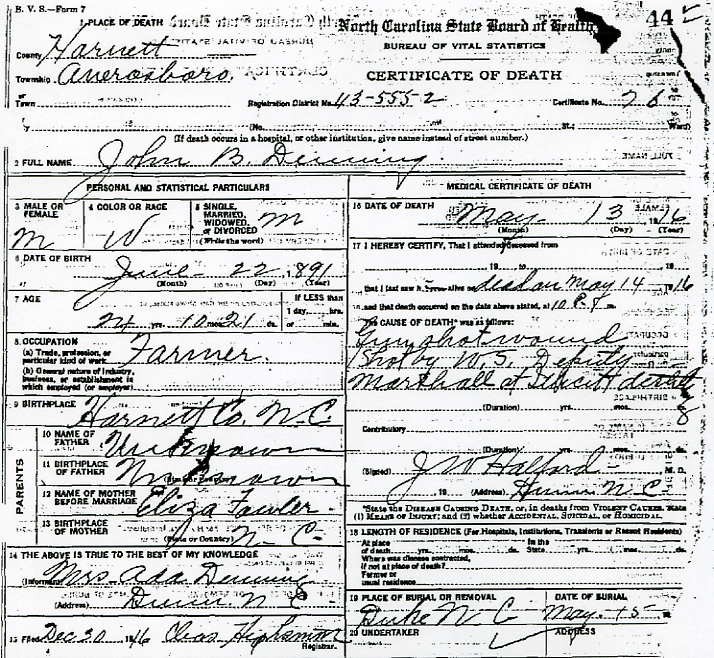 B. V. S.—Form 7
44
1 PLACE OF DEATH
North Carolina State Board of Health
County Harnett
BUREAU OF VITAL STATISTICS
Township Averasboro
CERTIFICATE OF DEATH
or
Town
Registration District No. 43-555-2 Certificate No. 76
(No. St.; Ward)
(If death occurs in a hospital, or other institution, give name instead of street number.)
2 FULL NAME John B Denning
PERSONAL AND STATISTICAL PARTICULARS
3 MALE OR FEMALE M
4 COLOR OR RACE W
5 SINGLE, MARRIED, WIDOWED, or DIVORCED M
(Write the word)
6 DATE OF BIRTH June 22, 1891
(Month) (Day) (Year)
7 AGE
If LESS than
1 day, hrs.
or min.
24 yrs. 10 mos. 21 ds.
8 OCCUPATION
(a) Trade, profession, or
particular kind of work Farmer
(b) General nature of industry,
business, or establishment in
which employed (or employer)
9 BIRTHPLACE Harnett Co. N-C
PARENTS
10 NAME OF FATHER Unknown
11 BIRTHPLACE OF FATHER Unknown
12 NAME OF MOTHER BEFORE MARRIAGE Eliza Fowler
13 BIRTHPLACE OF MOTHER N-C
(State or Country)
14 THE ABOVE IS TRUE TO THE BEST OF MY KNOWLEDGE
(Informant) Mrs Ada Denning
(Address) Dunn N C
15 Filed Dec 20 1916
Registrar.
MEDICAL CERTIFICATE OF DEATH
16 DATE OF DEATH May 13 1916
(Month) (Day) (Year)
17 I HEREBY CERTIFY, That I attended deceased from
19 to 19
that I last saw h alive on dead on May 14 1916
and that death occurred on the date above stated, at 10 P. m.
The CAUSE OF DEATH* was as follows:
Gun shot wound
Shot by U.S. Deputy
Marshall at Illicit distillery
(Duration) yrs. mos. ds.
Contributory
(Duration) yrs. mos. ds.
(Signed) J W Halford M. D.
19 (Address) Dunn N-C
*State the DISEASE CAUSING DEATH, or, in deaths from VIOLENT CAUSES, state
(1) MEANS OF INJURY; and (2) whether ACCIDENTAL, SUICIDAL, or HOMICIDAL.
18 LENGTH OF RESIDENCE (For Hospitals, Institutions, Transients or Recent Residents)
At place In the
of death yrs. mos. ds. State yrs. mos. ds.
Where was disease contracted,
if not at place of death?
Former or
usual residence
19 PLACE OF BURIAL OR REMOVAL
DATE OF BURIAL
Duke N-C May-15
20 UNDERTAKER
ADDRESS